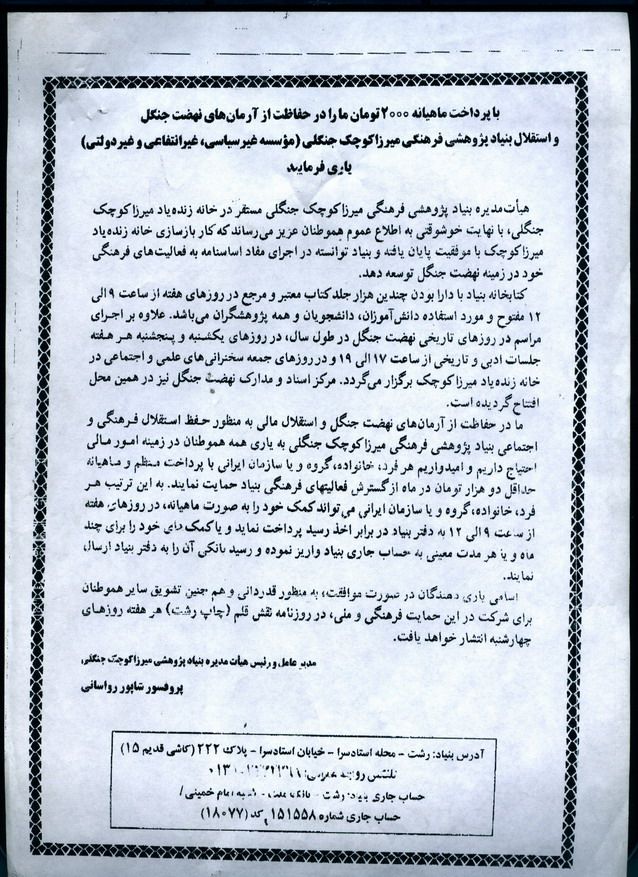 با پرداخت ماهیانه ۲۰۰۰ تومان ما را در حفاظت از آرمان‌های نهضت جنگل
و استقلال بنیاد پژوهشی فرهنگی میرزا کوچک جنگلی (مؤسسه غیرسیاسی، غیرانتفاعی و غیردولتی)
یاری فرمایید
هیأت مدیره بنیاد پژوهشی فرهنگی میرزا کوچک جنگلی مستقر در خانه زنده‌یاد میرزا کوچک
جنگلی، با نهایت خوشوقتی به اطلاع عموم هموطنان عزیز می‌رساند که کار بازسازی خانه زنده‌یاد
میرزا کوچک با موفقیت پایان یافته و بنیاد توانسته در اجرای مفاد اساسنامه به فعالیت‌های فرهنگی
خود در زمینه نهضت جنگل توسعه دهد.
کتابخانه بنیاد با دارا بودن چندین هزار جلد کتاب معتبر و مرجع در روزهای هفته از ساعت ۹ الی
۱۲ مفتوح و مورد استفاده دانش‌آموزان، دانشجویان و همه پژوهشگران می‌باشد. علاوه بر اجرای
مراسم در روزهای تاریخی نهضت جنگل در طول سال، در روزهای یکشنبه و پنجشنبه هر هفته
جلسات ادبی و تاریخی از ساعت ۱۷ الی ۱۹ و در روزهای جمعه سخنرانی‌های علمی و اجتماعی در
خانه زنده‌یاد میرزا کوچک برگزار می‌گردد. مرکز اسناد و مدارک نهضت جنگل نیز در همین محل
افتتاح گردیده است.
ما در حفاظت از آرمان‌های نهضت جنگل و استقلال مالی به منظور حفظ استقلال فرهنگی و
اجتماعی بنیاد پژوهشی فرهنگی میرزا کوچک جنگلی به یاری همه هموطنان در زمینه امور مالی
احتیاج داریم و امیدواریم هر فرد، خانواده، گروه و یا سازمان ایرانی با پرداخت منظم و ماهیانه
حداقل دو هزار تومان در ماه از گسترش فعالیتهای فرهنگی بنیاد حمایت نمایند. به این ترتیب هر
فرد، خانواده، گروه و یا سازمان ایرانی می‌تواند کمک خود را به صورت ماهیانه، در روزهای هفته
از ساعت ۹ الی ۱۲ به دفتر بنیاد در برابر اخذ رسید پرداخت نماید و یا کمک های خود را برای چند
ماه و یا هر مدت معینی به حساب جاری بنیاد واریز نموده و رسید بانکی آن را به دفتر بنیاد ارسال
نمایند.
اسامی یاری دهندگان در صورت موافقت، به منظور قدردانی و هم چنین تشویق سایر هموطنان
برای شرکت در این حمایت فرهنگی و ملی، در روزنامه نقش قلم (چاپ رشت) هر هفته روزهای
چهارشنبه انتشار خواهد یافت.
مدیر عامل و رئیس هیأت مدیره بنیاد پژوهشی میرزا کوچک جنگلی
پروفسور شاپور رواسانی
آدرس بنیاد: رشت - محله استادسرا - خیابان استادسرا - پلاک ۲۲۲ (کاشی قدیم ۱۵)
تلفکس روابط عمومی:
حساب جاری بنیاد: رشت - بانک ملت - شعبه امام خمینی /
حساب جاری شماره ۱۵۱۵۵۸ کد (۱۸۰۷۷)